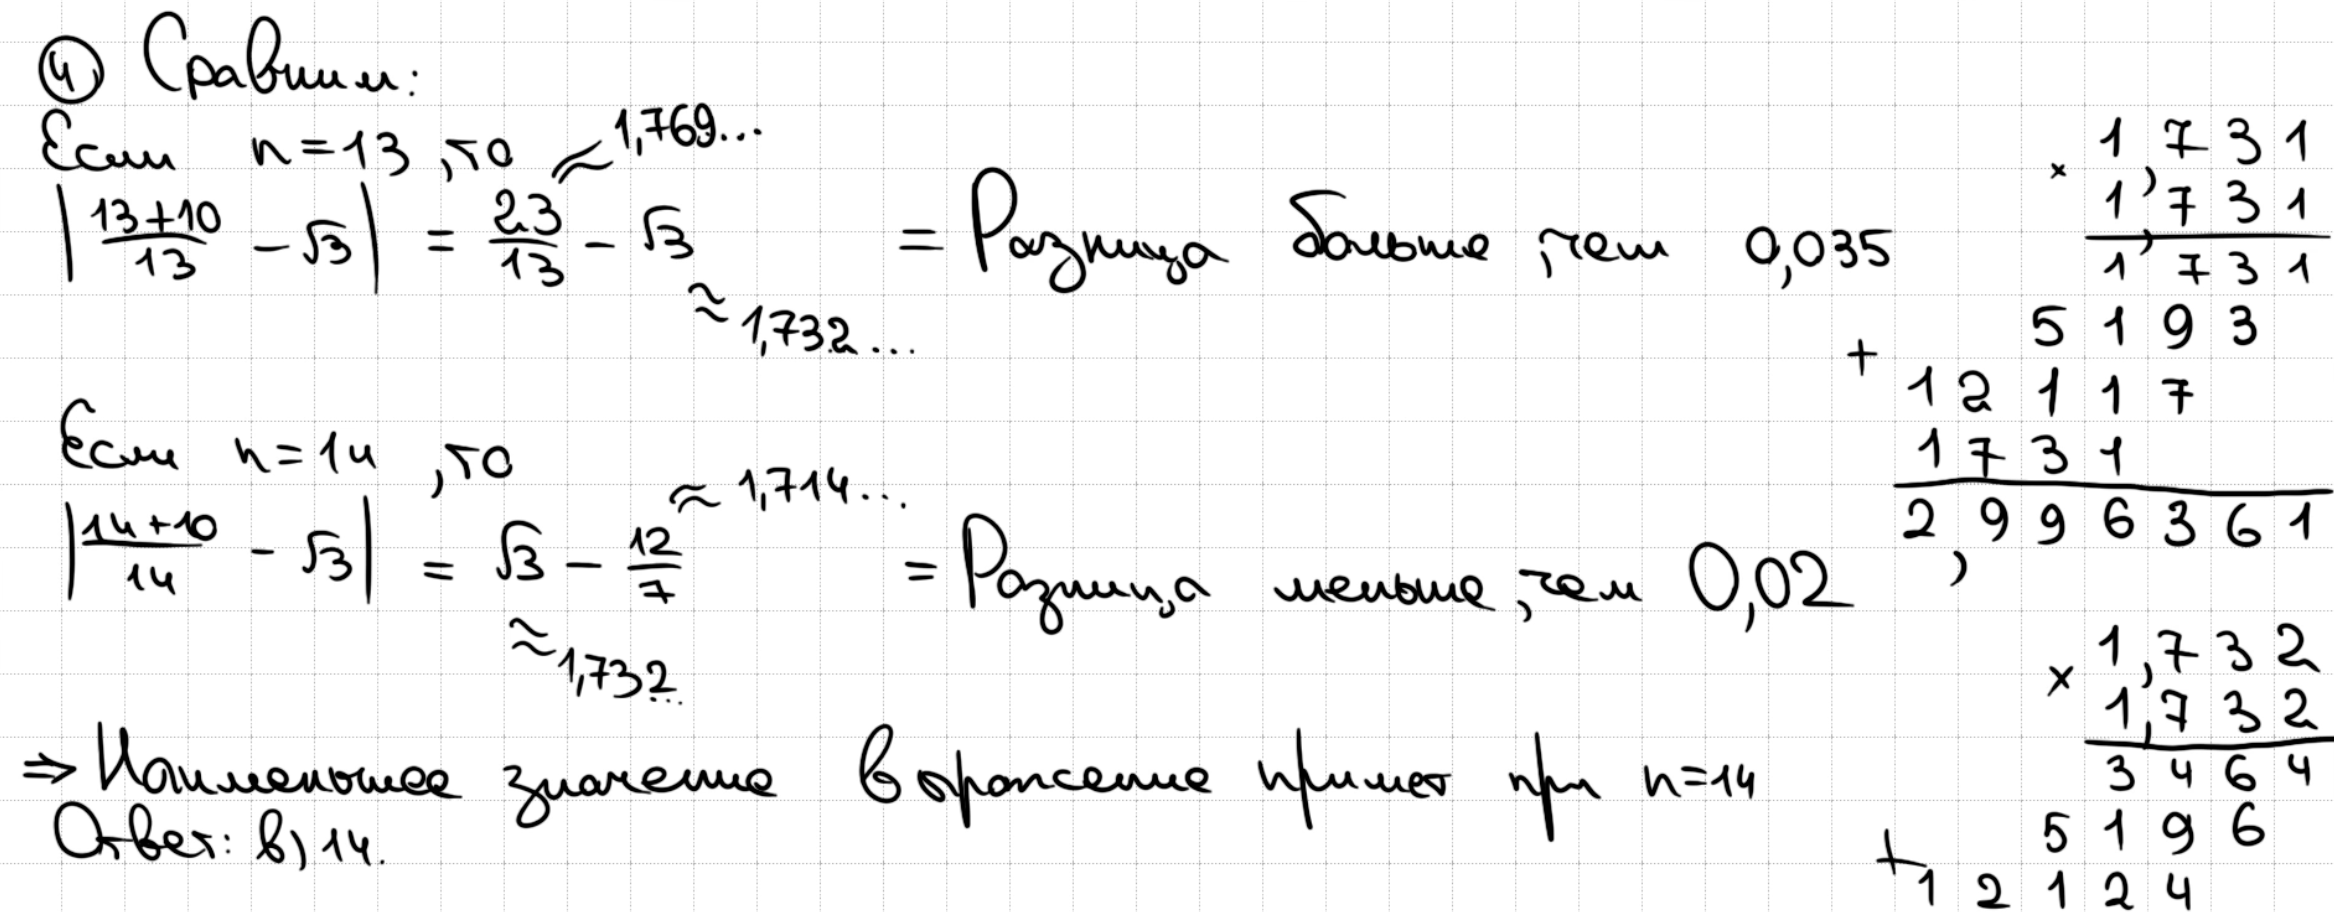 ④ Сравним:
Если n=13, то ≈1,769...
|13+10/13 - √3| = 23/13 - √3 = Разница больше, чем 0,035
≈1,732...
Если n=14, то
≈1,714...
|14+10/14 - √3| = √3 - 12/7 = Разница меньше, чем 0,02
≈1,732...
⇒ Наименьшее значение выражение примет при n=14
Ответ: в) 14.
1,731
× 1,731
1731
5193
+ 12117
1731
2,996361
1,732
× 1,732
3464
5196
+ 12124